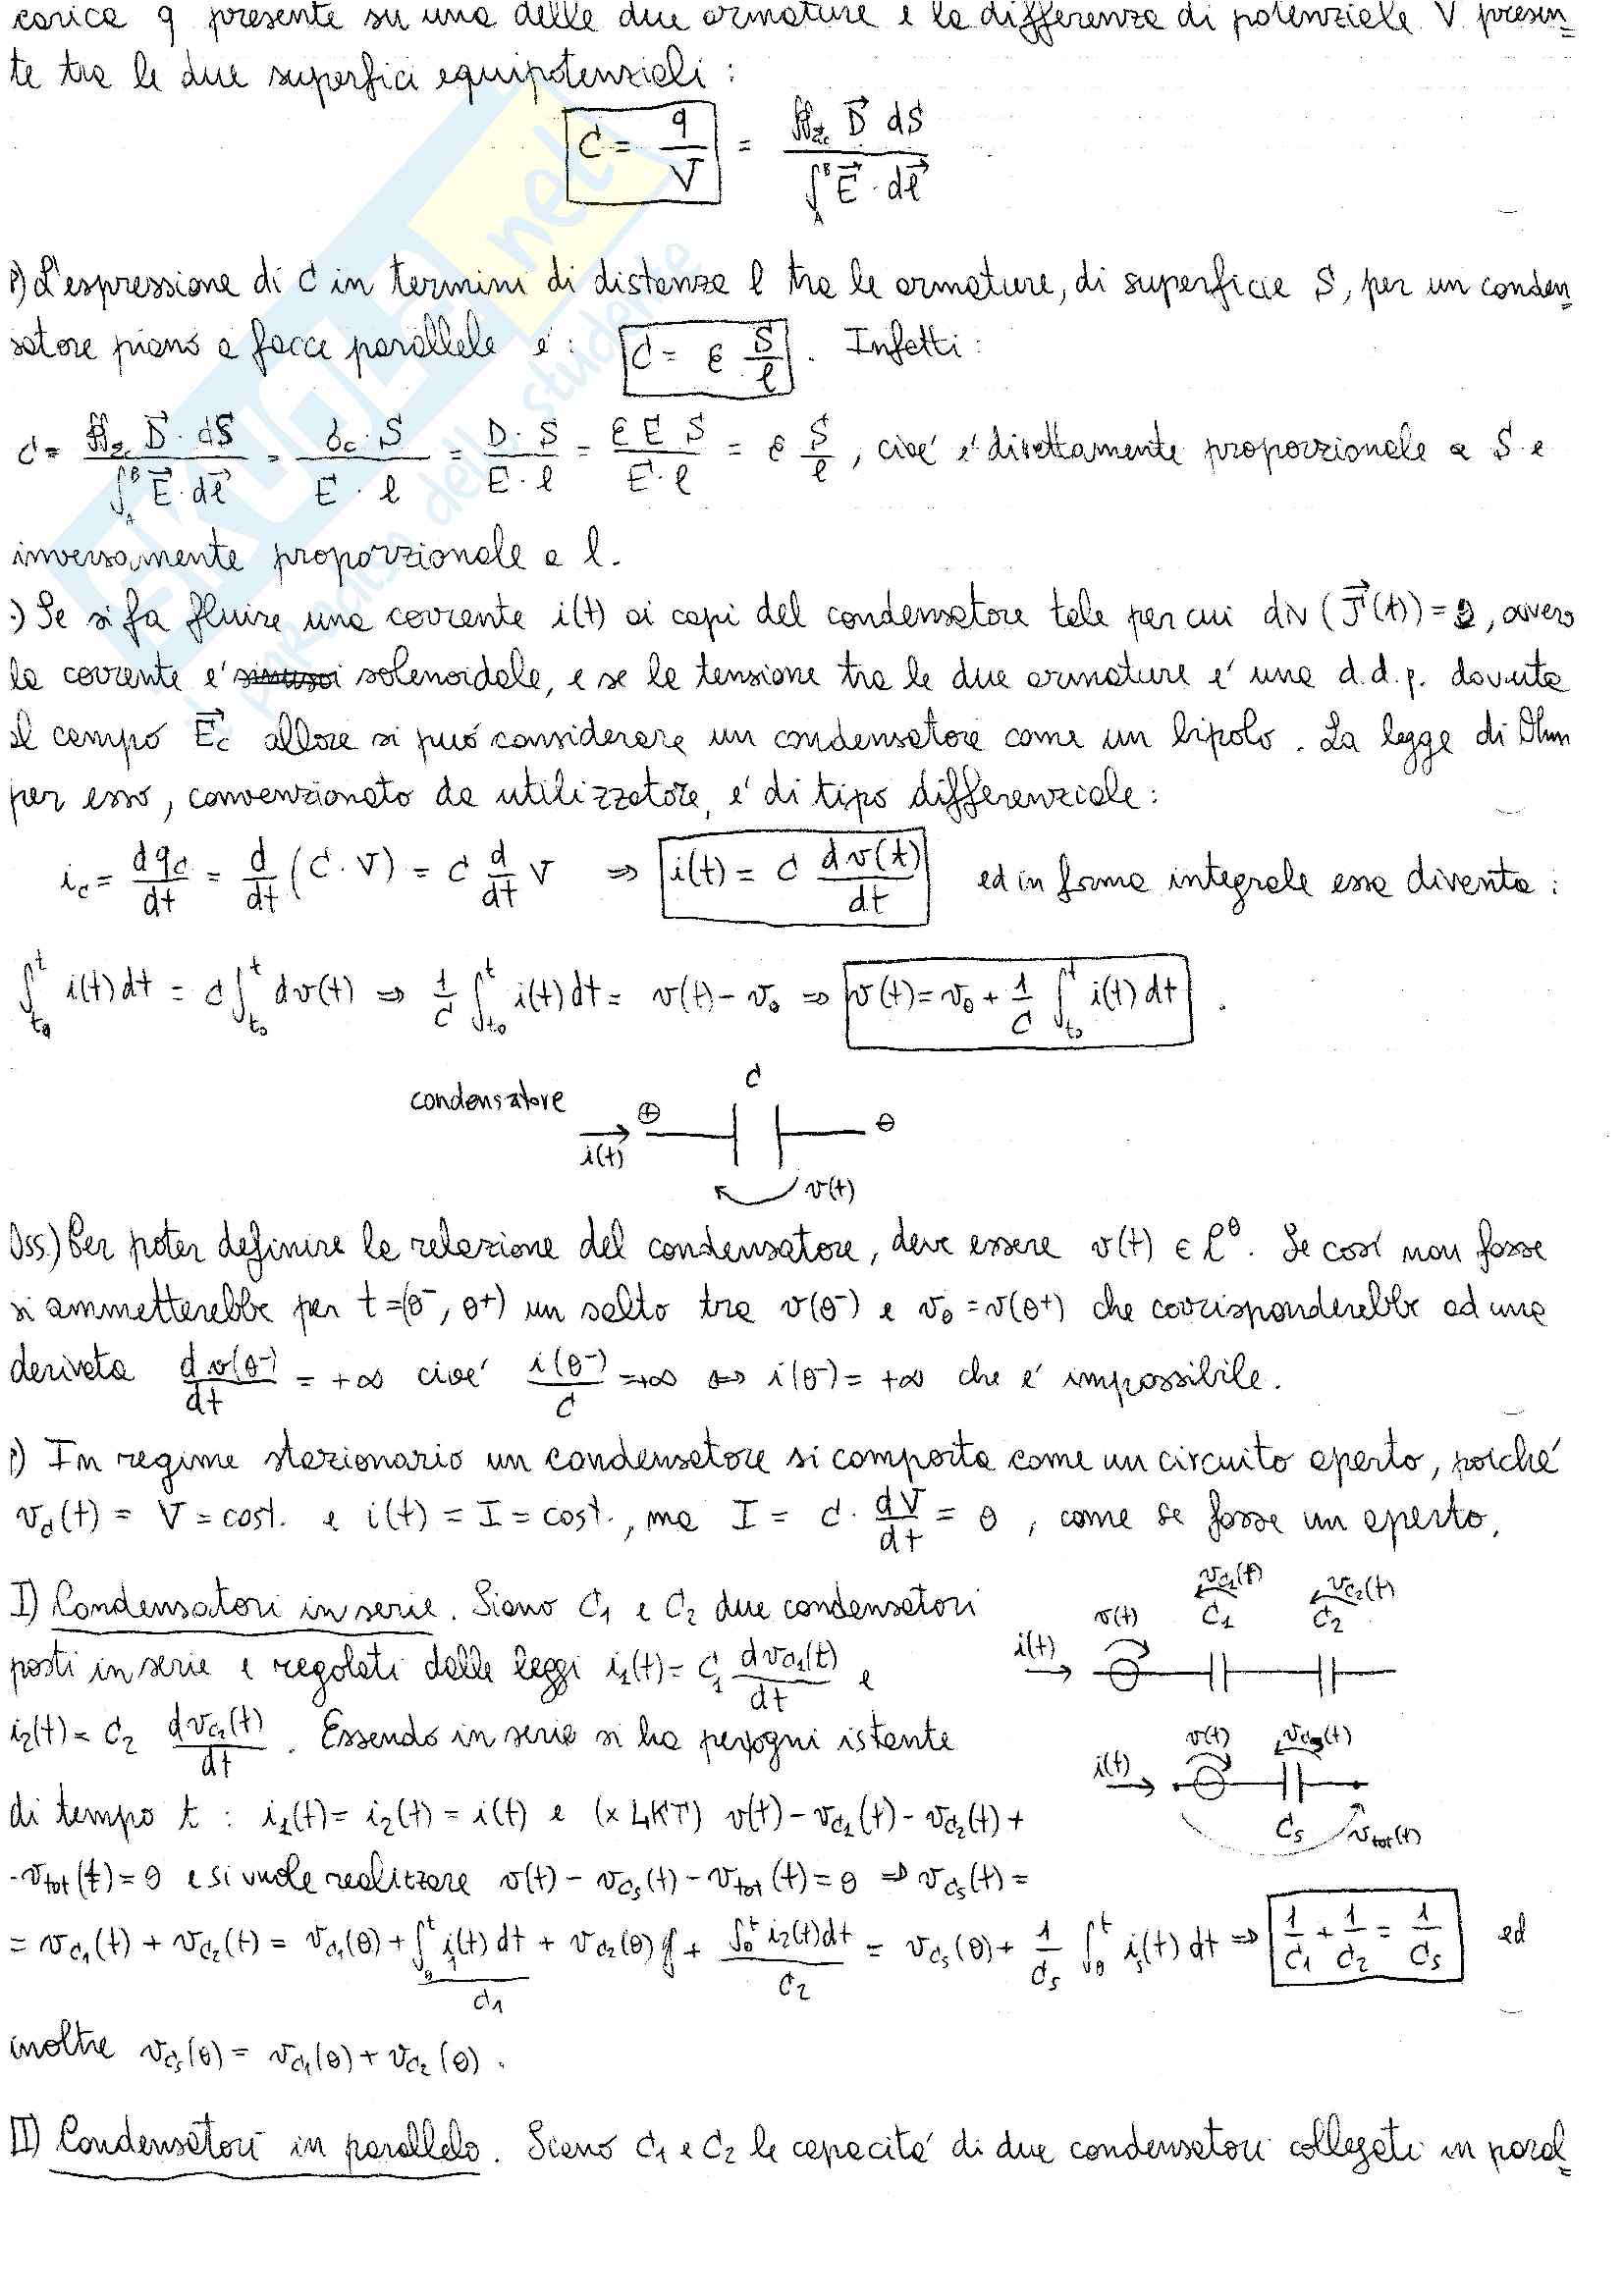 carica q presente su una delle due armature e la differenza di potenziale V presen=
te tra le due superfici equipotenziali :
C = q/V = ∯Σc D⃗ dS / ∫_A^B E⃗ · dl⃗
•) L'espressione di C in termini di distanza l tra le armature, di superficie S, per un conden=
satore piano a facce parallele é : C = ε S/l . Infatti :
C = ∯Σc D⃗ · dS / ∫_A^B E⃗ · dl⃗ = σc · S / E · l = D · S / E · l = ε E S / E · l = ε S/l , cioé é direttamente proporzionale a S e
inversamente proporzionale a l.
•) Se si fa fluire una corrente i(t) ai capi del condensatore tale per cui div (J⃗(t)) = 0, ovvero
la corrente é solenoidale, e se la tensione tra le due armature é una d.d.p. dovuta
al campo E⃗c allora si può considerare un condensatore come un bipolo. La legge di Ohm
per esso, convenzionato da utilizzatore, é di tipo differenziale :
ic = dqc/dt = d/dt (C · V) = C d/dt V ⇒ i(t) = C dv(t)/dt ed in forma integrale essa diventa :
∫_t0^t i(t) dt = C ∫_t0^t dv(t) ⇒ 1/C ∫_t0^t i(t) dt = v(t) - v0 ⇒ v(t) = v0 + 1/C ∫_t0^t i(t) dt .
C
condensatore
⊕ ⊖
i(t)
v(t)
Oss.) Per poter definire la relazione del condensatore, deve essere v(t) ∈ C⁰. Se così non fosse
si ammetterebbe per t = (0⁻, 0⁺) un salto tra v(0⁻) e v0 = v(0⁺) che corrisponderebbe ad una
derivata dv(0⁻)/dt = +∞ cioé i(0⁻)/C = +∞ ⇔ i(0⁻) = +∞ che é impossibile.
•) In regime stazionario un condensatore si comporta come un circuito aperto, poiché
vc(t) = V = cost. e i(t) = I = cost., ma I = C · dV/dt = 0 , come se fosse un aperto.
I) Condensatori in serie. Siano C1 e C2 due condensatori
posti in serie e regolati dalle leggi i1(t) = C1 dvC1(t)/dt e
i2(t) = C2 dvC2(t)/dt . Essendo in serie si ha per ogni istante
di tempo t : i1(t) = i2(t) = i(t) e (x LKT) v(t) - vC1(t) - vC2(t) +
- vtot(t) = 0 e si vuole realizzare v(t) - vCs(t) - vtot(t) = 0 ⇒ vCs(t) =
vC1(t) vC2(t)
v(t) C1 C2
i(t)
v(t) vCs(t)
i(t)
Cs vtot(t)
= vC1(t) + vC2(t) = vC1(0) + ∫_0^t i1(t) dt / C1 + vC2(0) + ∫_0^t i2(t) dt / C2 = vCs(0) + 1/Cs ∫_0^t is(t) dt ⇒ 1/C1 + 1/C2 = 1/Cs ed
inoltre vCs(0) = vC1(0) + vC2(0) .
II) Condensatori in parallelo. Siano C1 e C2 le capacitá di due condensatori collegati in paral=